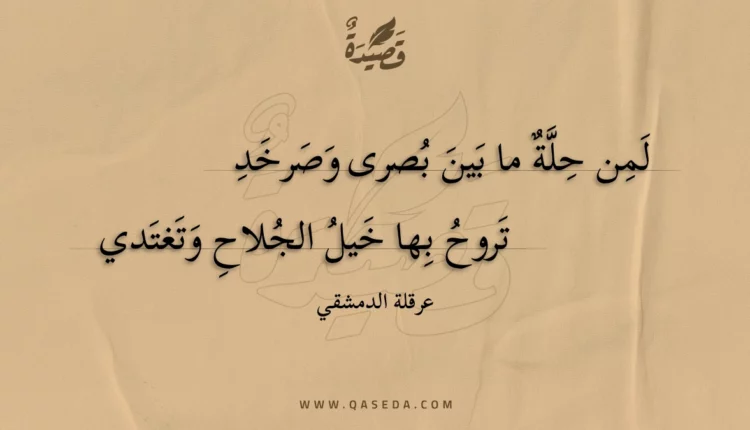 قَصِيدَةٌ
لَمِن حِلَّةٌ ما بَينَ بُصرى وَصَرخَدِ
تَروحُ بِها خَيلُ الجُلاحِ وَتَغتَدي
عرقلة الدمشقي
WWW.QASEDA.COM